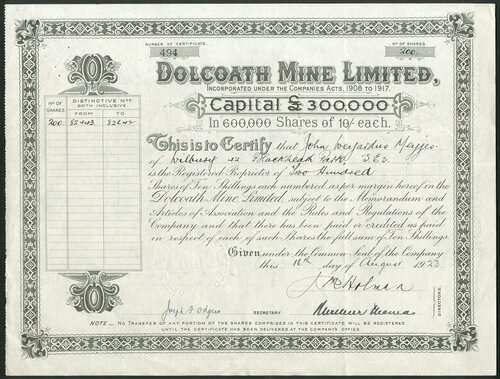 NUMBER OF CERTIFICATE.
494
No OF SHARES.
200
DOLCOATH MINE LIMITED,
INCORPORATED UNDER THE COMPANIES ACTS, 1908 TO 1917.
Capital £300,000
In 600,000 Shares of 10/- each.
No OF SHARES
DISTINCTIVE Nos BOTH INCLUSIVE.
FROM
TO
200
This is to Certify that John
of
is the Registered Proprietor of Two Hundred
Shares of Ten Shillings each numbered as per margin hereof in the
Dolcoath Mine Limited, subject to the Memorandum and
Articles of Association and the Rules and Regulations of the
Company and that there has been paid or credited as paid
in respect of each of such Shares the full sum of Ten Shillings.
Given under the Common Seal of the Company
this 16th day of August 1923
Joseph F Odgers
SECRETARY.
Thomas
DIRECTORS.
NOTE.— NO TRANSFER OF ANY PORTION OF THE SHARES COMPRISED IN THIS CERTIFICATE WILL BE REGISTERED
UNTIL THE CERTIFICATE HAS BEEN DELIVERED AT THE COMPANY'S OFFICE.